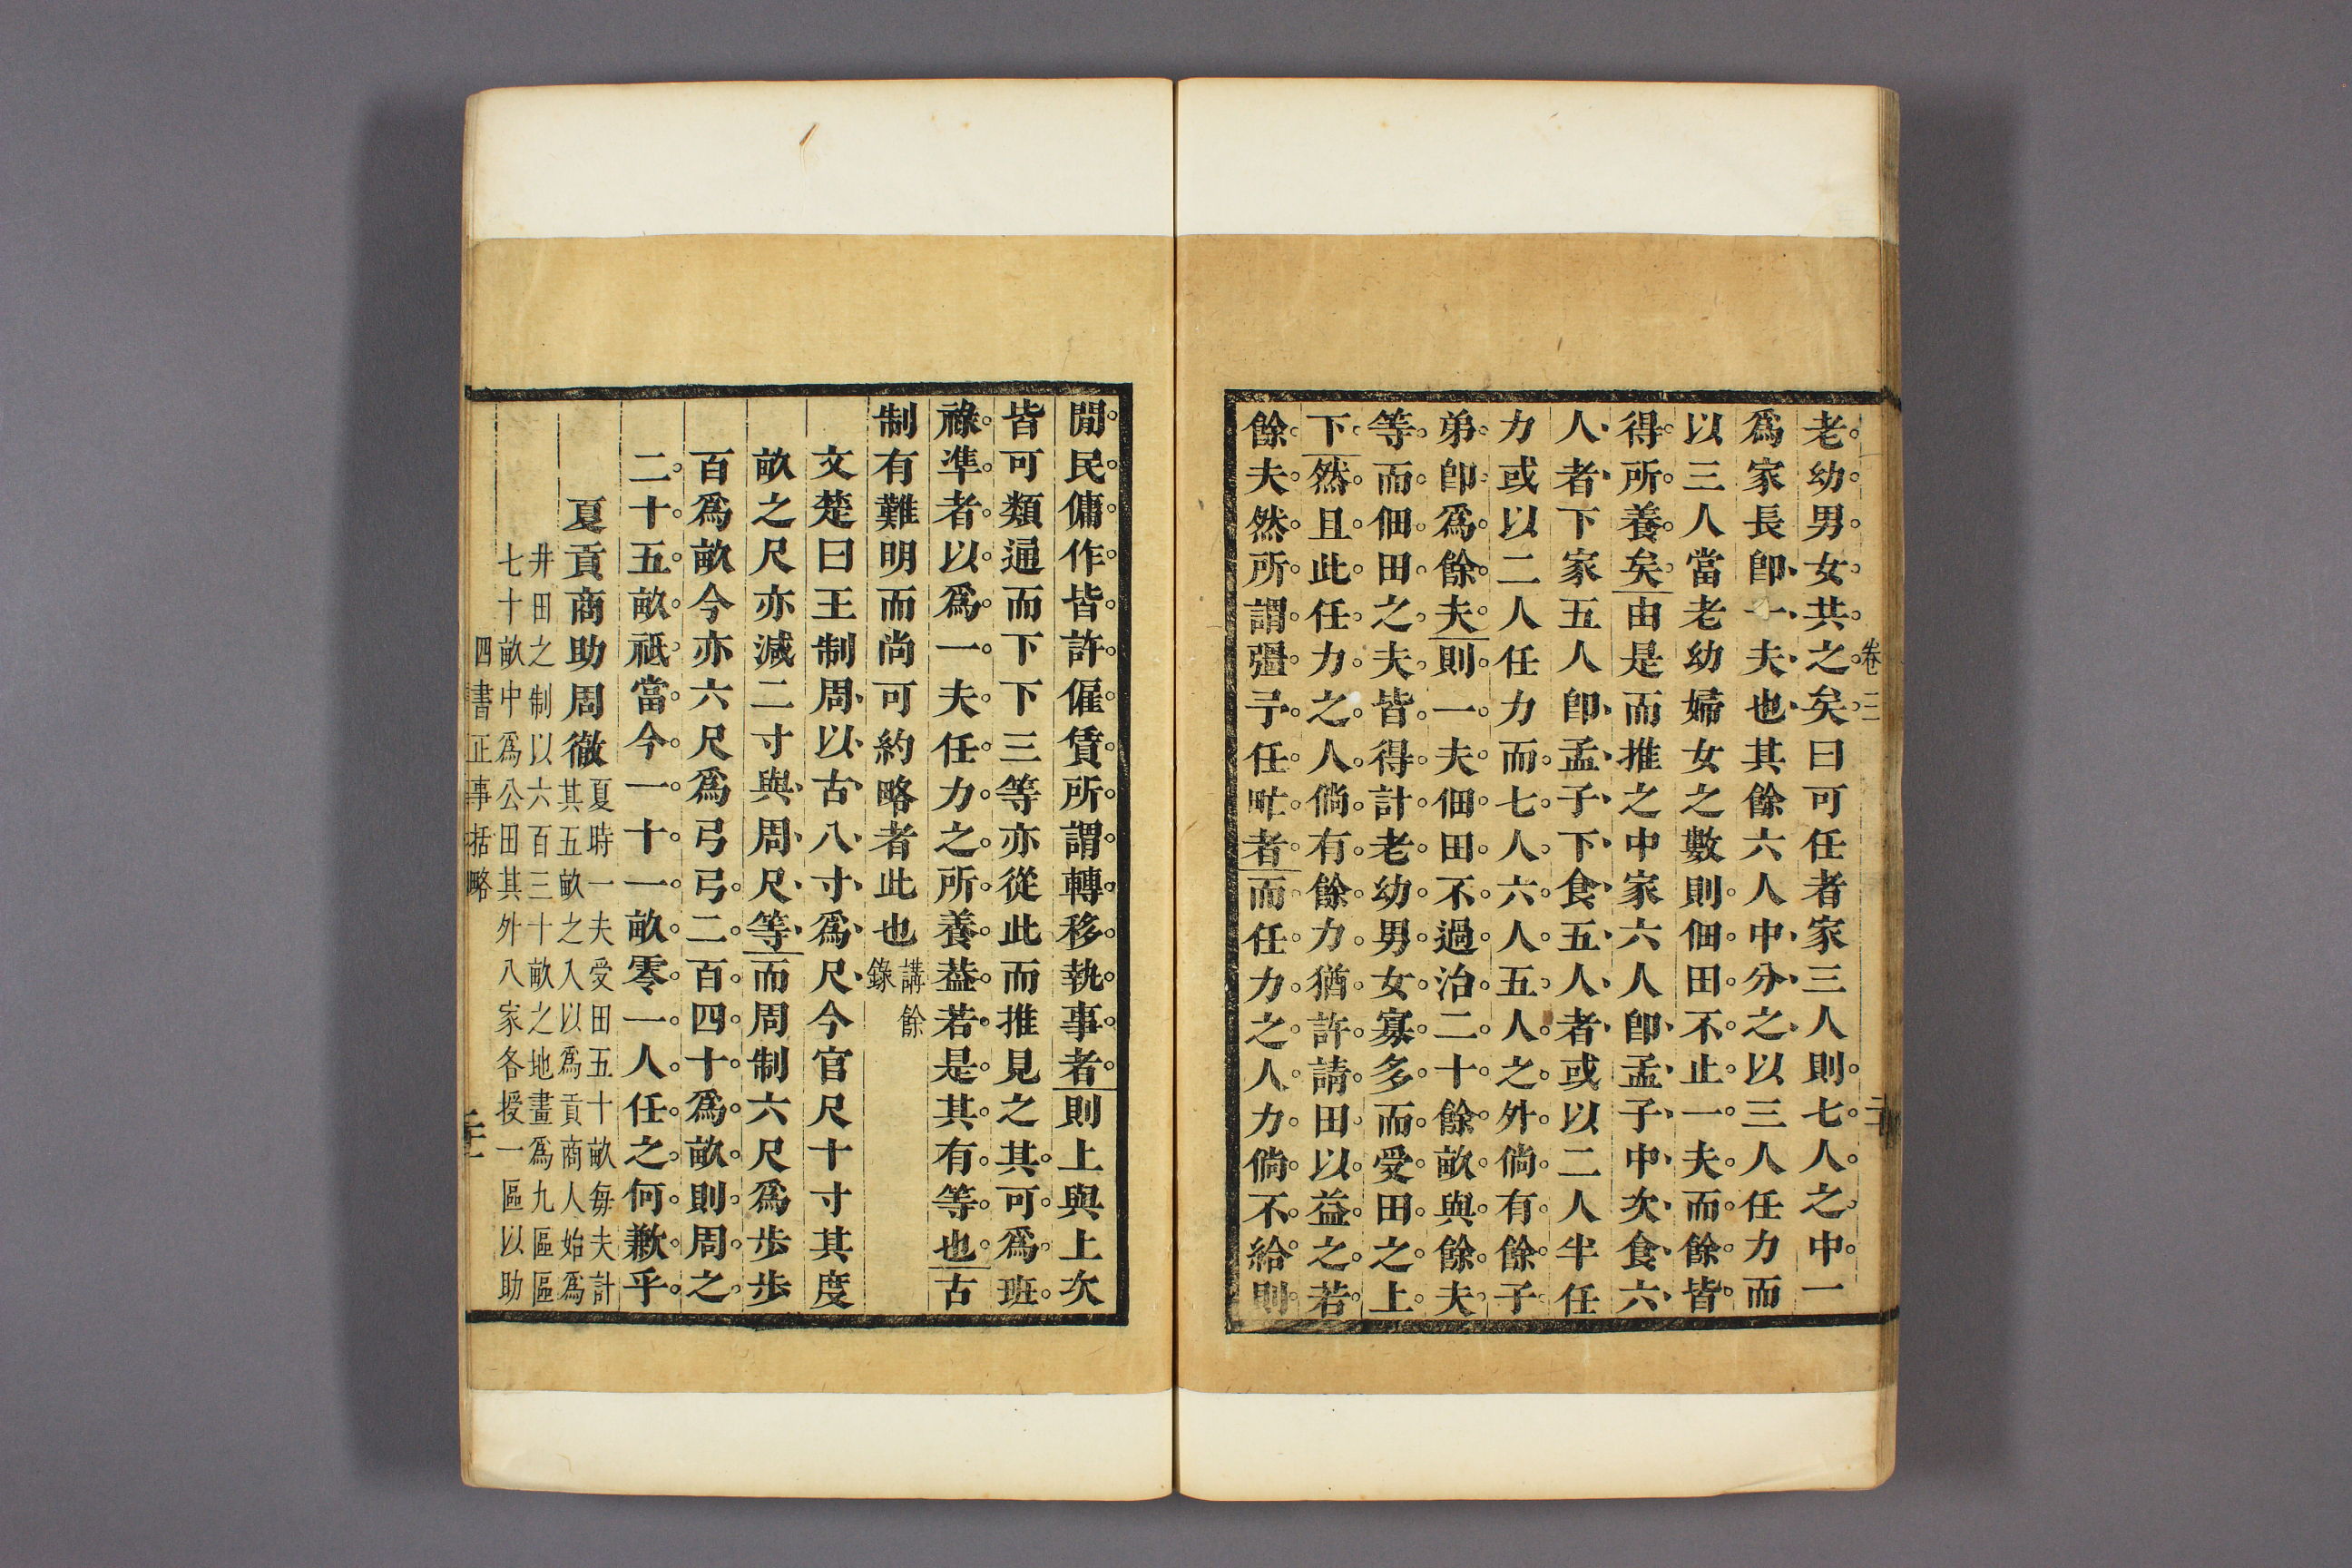 卷三
老幼男女共之矣曰可任者家三人則七人之中一
爲家長卽一夫也其餘六人中分之以三人任力而
以三人當老幼婦女之數則佃田不止一夫而餘皆
得所養矣由是而推之中家六人卽孟子中次食六
人者下家五人卽孟子下食五人者或以二人半任
力或以二人任力而七人六人五人之外倘有餘子
弟卽爲餘夫則一夫佃田不過治二十餘畝與餘夫
等而佃田之夫皆得計老幼男女寡多而受田之上
下然且此任力之人倘有餘力猶許請田以益之若
餘夫然所謂彊予任甿者而任力之人力倘不給則
閒民傭作皆許僱賃所謂轉移執事者則上與上次
皆可類通而下下三等亦從此而推見之其可爲班
祿準者以爲一夫任力之所養葢若是其有等也古
制有難明而尚可約略者此也講餘
錄
文楚曰王制周以古八寸爲尺今官尺十寸其度
畝之尺亦減二寸與周尺等而周制六尺爲步步
百爲畝今亦六尺爲弓弓二百四十爲畝則周之
二十五畝祗當今一十一畝零一人任之何歉乎
夏貢商助周徹夏時一夫受田五十畝每夫計
其五畝之入以爲貢商人始爲
井田之制以六百三十畝之地畫爲九區區
七十畝中爲公田其外八家各授一區以助
四書正事括略